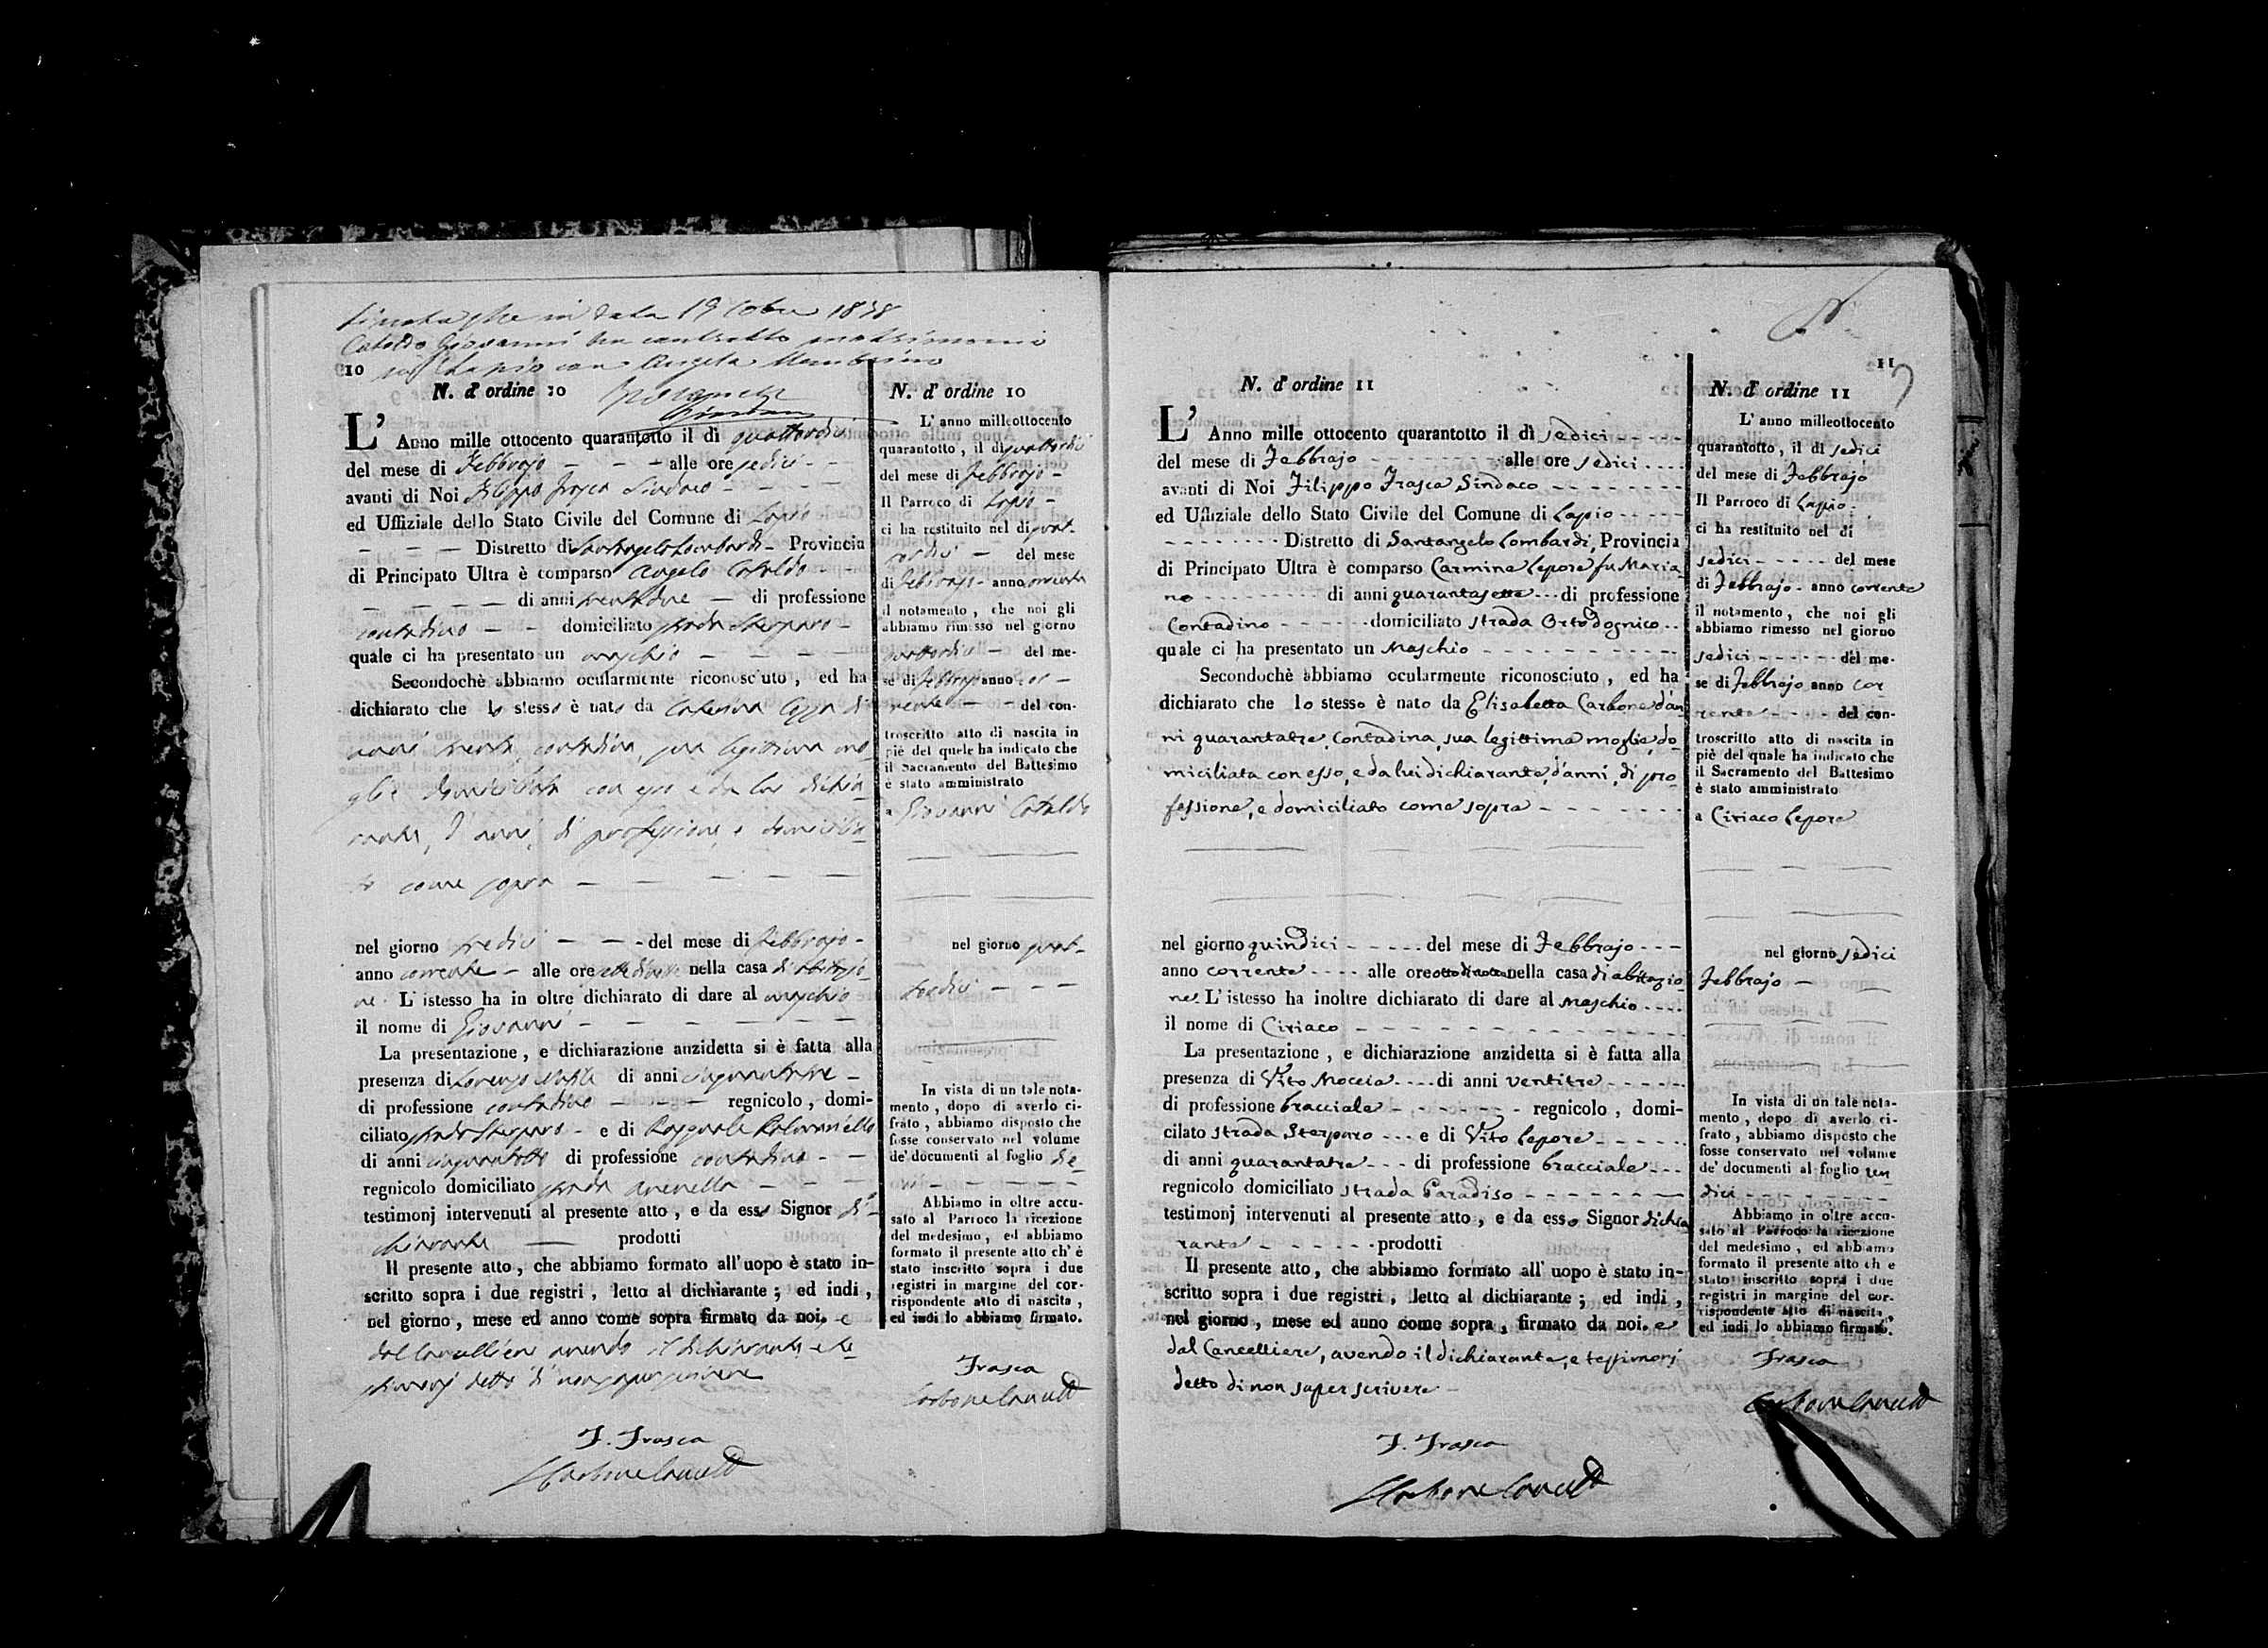 in data 19 1878
Cataldo Giovanni ha contratto matrimonio
in Lapio con Angela
10
N. d' ordine 10
L' Anno mille ottocento quarantotto il dì quattordici
del mese di Febbrajo - - - alle ore sedici - -
avanti di Noi Filippo Frasca Sindaco - - - -
ed Uffiziale dello Stato Civile del Comune di Lapio
- - - Distretto di Santangelo Lombardi - Provincia
di Principato Ultra è comparso Angelo Cataldo - -
- - - - di anni trentadue - di professione
contadino - - domiciliato strada Sterparo -
quale ci ha presentato un maschio - - - -
Secondochè abbiamo ocularmente riconosciuto, ed ha
dichiarato che lo stesso è nato da Caterina d'
anni trenta, contadina, sua legittima mo-
glie domiciliata con esso e da lui dichia-
rante, d'anni, di professione, e domicilia-
to come sopra - - - - -
nel giorno tredici - - - del mese di Febbrajo -
anno corrente - alle ore nella casa di abitazio-
ne. L' istesso ha in oltre dichiarato di dare al maschio
il nome di Giovanni - - - - - -
La presentazione, e dichiarazione anzidetta si è fatta alla
presenza di Lorenzo di anni -
di professione contadino - - - regnicolo, domi-
ciliato strada Sterparo - e di Pasquale
di anni cinquantotto di professione contadino - -
regnicolo domiciliato strada - - -
testimonj intervenuti al presente atto, e da esso Signor di-
chiarante - prodotti
Il presente atto, che abbiamo formato all' uopo è stato in-
scritto sopra i due registri, letto al dichiarante; ed indi,
nel giorno, mese ed anno come sopra firmato da noi, e
dal Cancelliere avendo il dichiarante, e te-
stimonj detto di non saper scrivere
F. Frasca
Carbone Cancell
N. d' ordine 10
L' anno milleottocento
quarantotto, il dì quattordici
del mese di Febbrajo -
Il Parroco di Lapio -
ci ha restituito nel dì quat-
tordici - del mese
di Febbrajo - anno corrente
il notamento, che noi gli
abbiamo rimesso nel giorno
quattordici - del me-
se di Febbrajo anno cor-
rente - - del con-
troscritto atto di nascita in
piè del quele ha indicato che
il Sacramento del Battesimo
è stato amministrato
a Giovanni Cataldo
nel giorno quat-
tordici - - -
In vista di un tale nota-
mento, dopo di averlo ci-
frato, abbiamo disposto che
fosse conservato nel volume
de' documenti al foglio die-
ci - - - - -
Abbiamo in oltre accu-
sato al Parroco la ricezione
del medesimo, ed abbiamo
formato il presente atto ch' è
stato inscritto sopra i due
registri in margine del cor-
rispondente atto di nascita,
ed indi lo abbiamo firmato.
Frasca
Carbone Cancell
11
N. d' ordine 11
L' Anno mille ottocento quarantotto il dì sedici - - - -
del mese di Febbrajo - - - - - - - alle ore sedici ....
avanti di Noi Filippo Frasca Sindaco - - - - - - - -
ed Uffiziale dello Stato Civile del Comune di Lapio - - - -
- - - - - - - Distretto di Santangelo Lombardi, Provincia
di Principato Ultra è comparso Carmine Lepore fu Maria-
no - - - - - - - di anni quarantasette - - - di professione
Contadino - - - - - - domiciliato strada Ortodognico . .
quale ci ha presentato un Maschio - - - - - - - - - -
Secondochè abbiamo ocularmente riconosciuto, ed ha
dichiarato che lo stesso è nato da Elisabetta Carbone d'an-
ni quarantatre, Contadina, sua legittima moglie, do-
miciliata con esso, e da lui dichiarante, d'anni, di pro-
fessione, e domiciliato come sopra - - - - - - -
nel giorno quindici - - - - - del mese di Febbrajo - - -
anno corrente - - - - alle ore otto di notte nella casa di abitazio-
ne. L' istesso ha inoltre dichiarato di dare al Maschio - - - -
il nome di Ciriaco - - - - - - - - - - - - -
La presentazione, e dichiarazione anzidetta si è fatta alla
presenza di Vito Moccia - - - - di anni ventitre - - - - - -
di professione bracciale - - - - - - - regnicolo, domi-
cilato strada Sterparo - - - e di Vito Lepore - - - - - -
di anni quarantatre - - - di professione bracciale - - -
regnicolo domiciliato strada Paradiso - - - - - - -
testimonj intervenuti al presente atto, e da esso Signor dichia
rante - - - - - - prodotti
Il presente atto, che abbiamo formato all' uopo è stato in-
scritto sopra i due registri, letto al dichiarante; ed indi,
nel giorno, mese ed anno come sopra, firmato da noi. e
dal Cancelliere, avendo il dichiarante, e testimonj
detto di non saper scrivere -
F. Frasca
Carbone Cancell
N. d' ordine 11
L' anno milleottocento
quarantotto, il dì sedici
del mese di Febbrajo
Il Parroco di Lapio -
ci ha restituito nel dì
sedici - - - - - del mese
di Febbrajo - anno corrente
il notamento, che noi gli
abbiamo rimesso nel giorno
sedici - - - - - del me-
se di Febbrajo anno cor
rente - - - - del con-
troscritto atto di nascita in
piè del quale ha indicato che
il Sacramento del Battesimo
è stato amministrato
a Ciriaco Lepore
nel giorno sedici
Febbrajo -
In vista di un tale nota-
mento, dopo di averlo ci-
frato, abbiamo disposto che
fosse conservato nel volume
de' documenti al foglio un
dici - - - - - - -
Abbiamo in oltre accu-
sato al Parroco la ricezione
del medesimo, ed abbiamo
formato il presente atto ch e
stato inscritto sopra i due
registri in margine del cor-
rispondente atto di nascita,
ed indi lo abbiamo firmato.
Frasca
Carbone Cancell